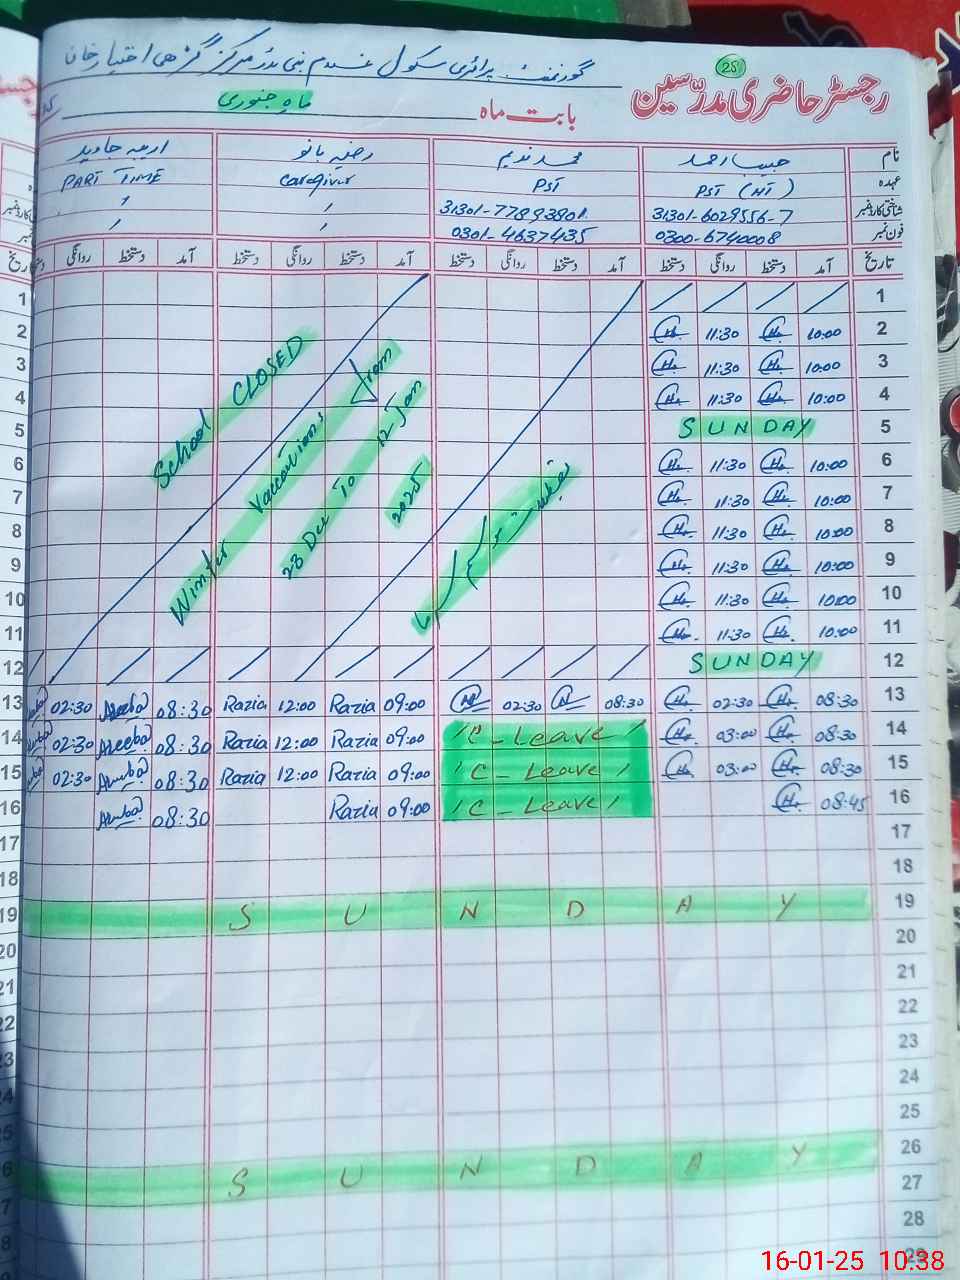 گورنمنٹ پرائمری سکول غلام نبی بدر مرکز گڑھی اختیار خان
رجسٹر حاضری مدرّسین 25
بابت ماہ ماہ جنوری
نام حبیب احمد محمد ندیم رضیہ بانو اریبہ جاوید
عہدہ PST (HT) PST Caregiver PART TIME
شناختی کارڈ نمبر 31301-6029556-7 31301-77893801
فون نمبر 0300-6740008 0301-4637435
تاریخ آمد دستخط روانگی دستخط آمد دستخط روانگی دستخط آمد دستخط روانگی دستخط آمد دستخط روانگی تاریخ
1 1
2 11:30 10:00 2
3 11:30 10:00 3
4 11:30 10:00 4
5 SUNDAY 5
6 11:30 10:00 6
7 11:30 10:00 7
8 11:30 10:00 8
9 11:30 10:00 9
10 11:30 10:00 10
11 11:30 10:00 11
12 SUNDAY 12
School CLOSED
Winter Vaccations from
28 Dec To 12 Jan
2025
تعطیلات موسم سرما
13 02:30 Areeba 08:30 Razia 12:00 Razia 09:00 02:30 08:30 02:30 08:30 13
14 02:30 Areeba 08:30 Razia 12:00 Razia 09:00 C-Leave 03:00 08:30 14
15 02:30 Areeba 08:30 Razia 12:00 Razia 09:00 C-Leave 03:00 08:30 15
16 Areeba 08:30 Razia 09:00 C-Leave 08:45 16
17 17
18 18
19 SUNDAY 19
20 20
21 21
22 22
23 23
24 24
25 25
26 SUNDAY 26
27 27
28 28
29
16-01-25 10:38